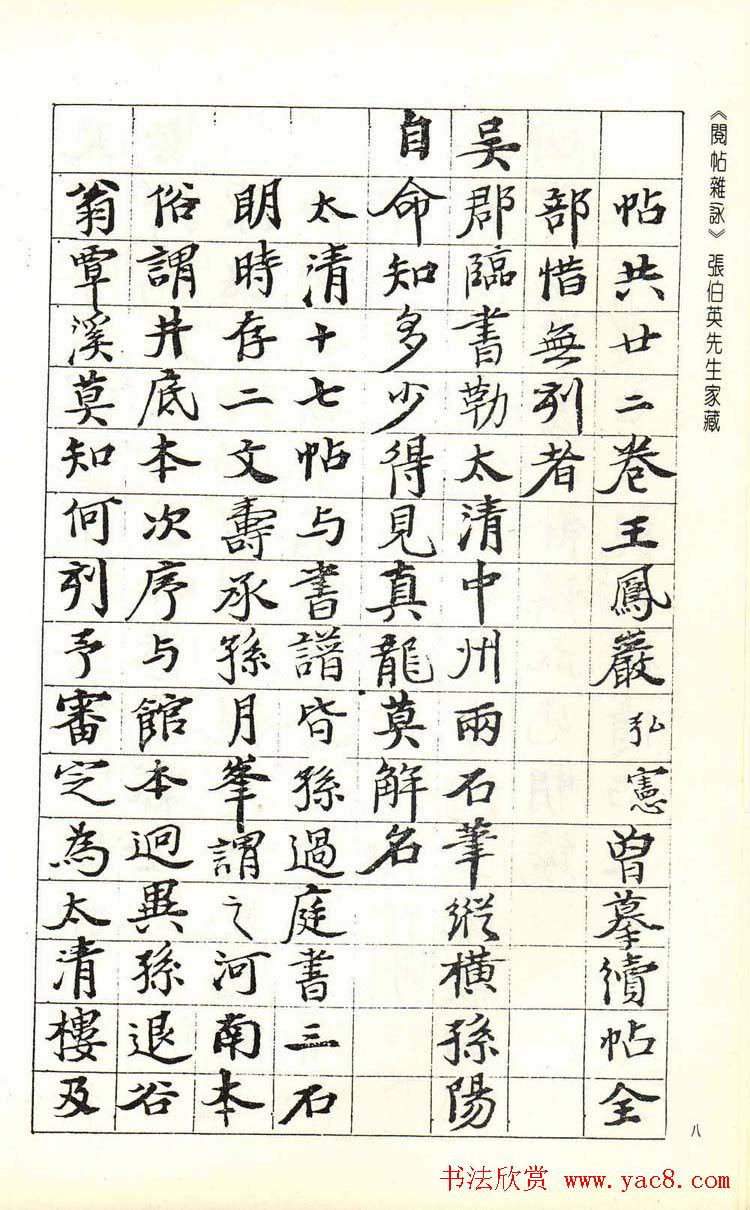 《閱帖雜詠》張伯英先生家藏
八
帖共廿二卷王鳳巖弘憲曾摹續帖全
部惜無列者
吴郡臨書勒太清中州兩石筆縱橫孫陽
自命知多少得見真龍莫解名
太清十七帖与書譜皆孫過庭書三石
明時存二文壽承孫月峯謂之河南本
俗謂井底本次序与館本迥異孫退谷
翁覃溪莫知何列予審定為太清樓及
书法欣赏 www.yac8.com